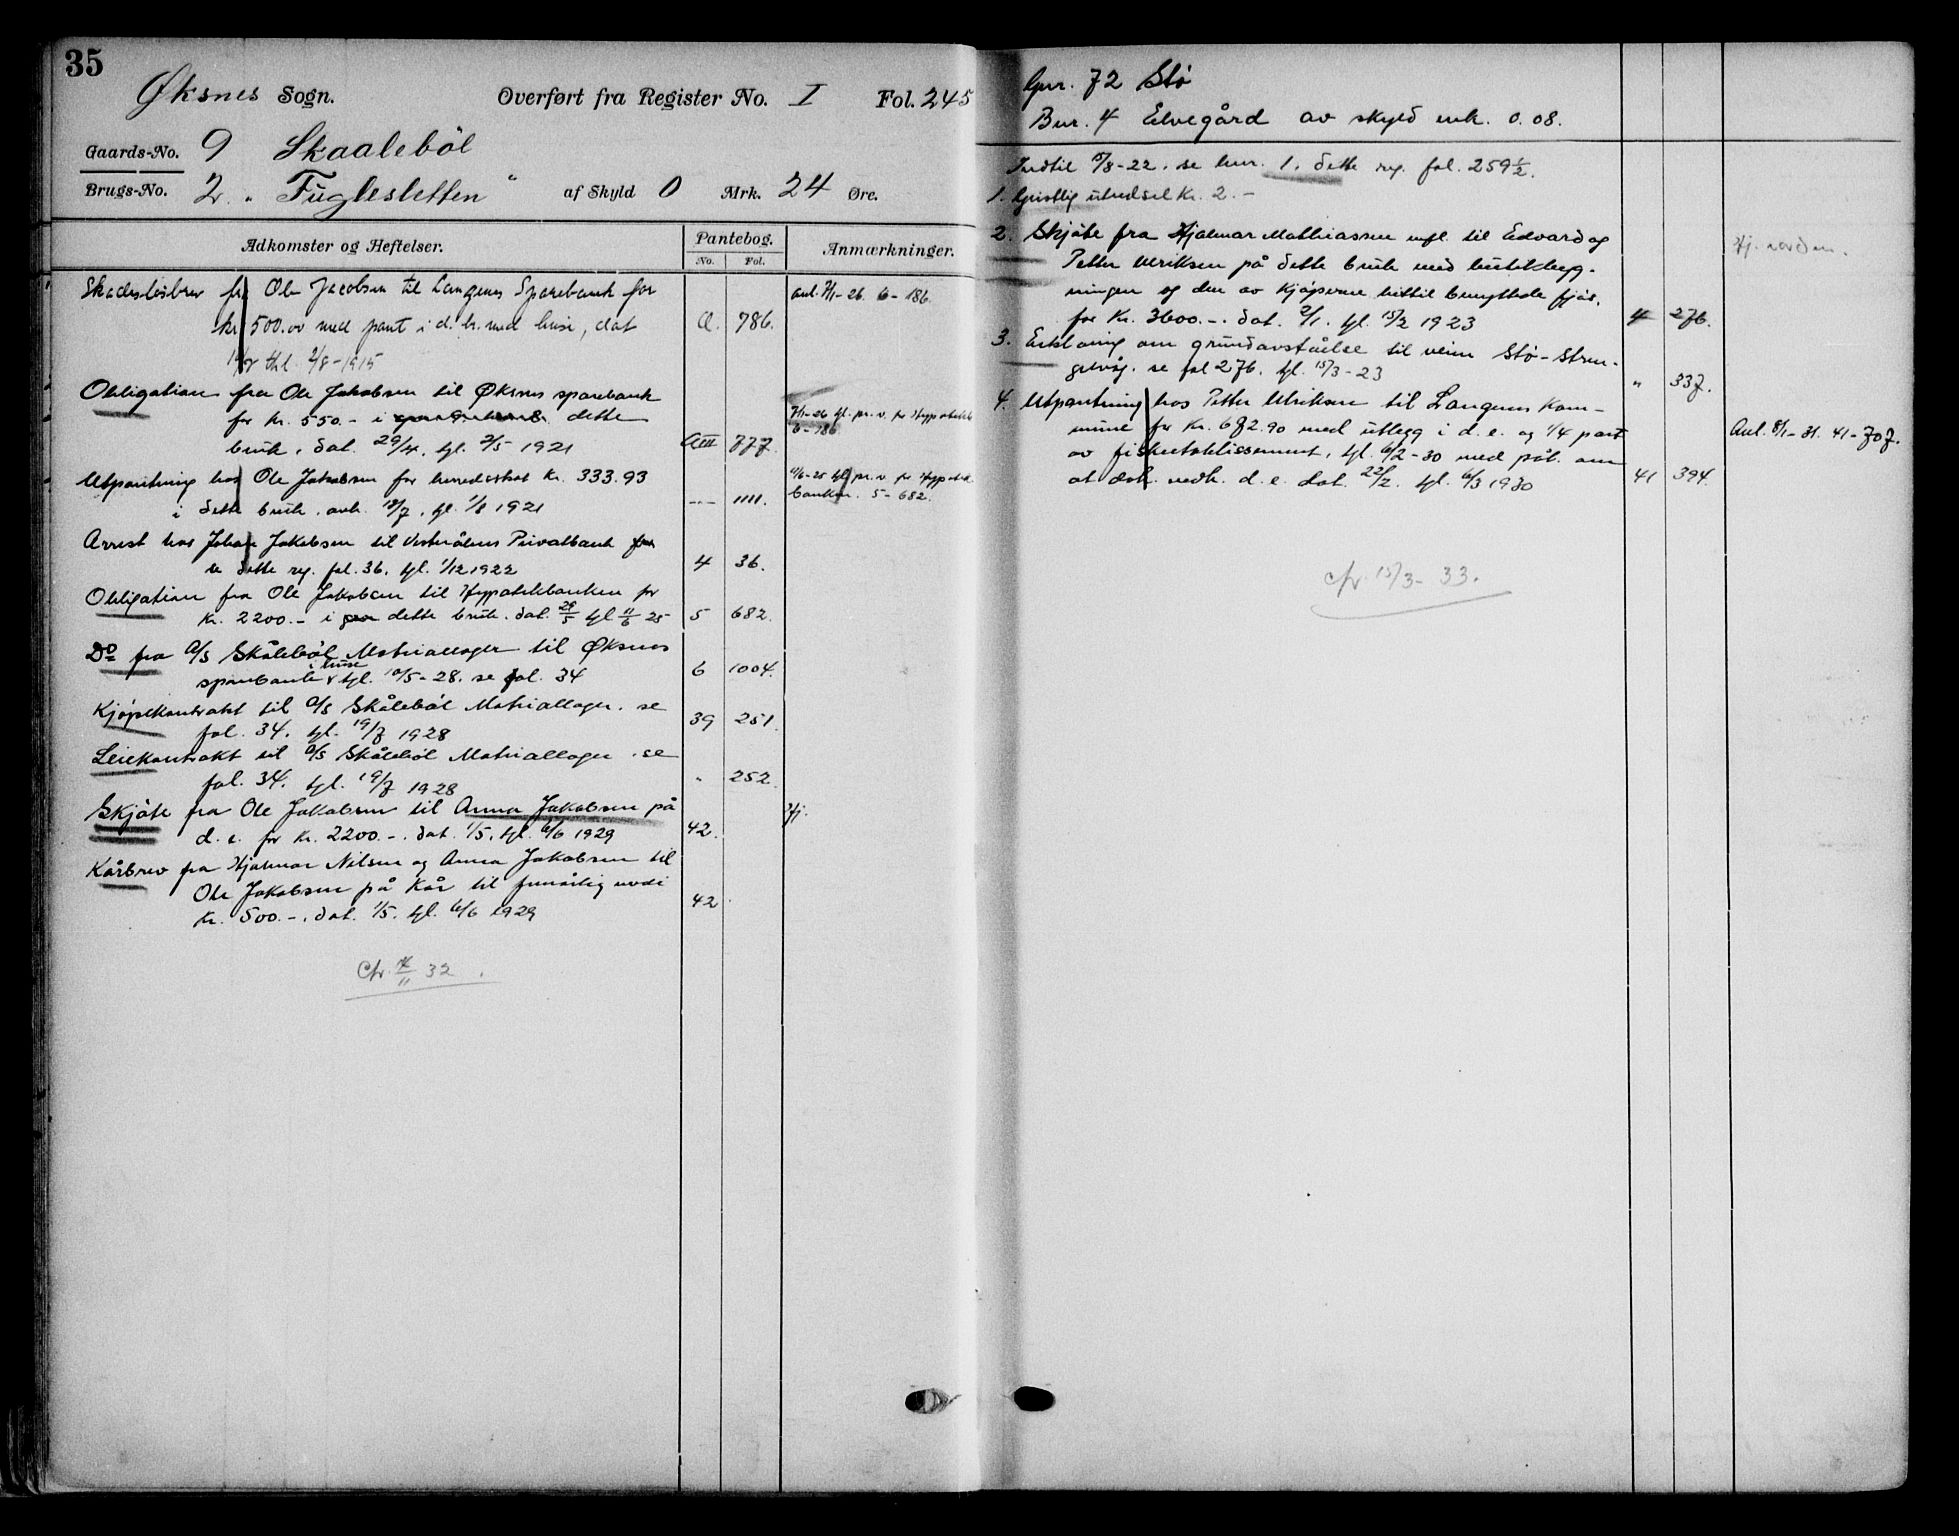 35
Øksnes Sogn. Overført fra Register No. I Fol. 245
Gaards-No. 9 Skaalebøl
Brugs-No. 2. „ Fuglesletten " af Skyld 0 Mrk. 24 Øre.
Adkomster og Heftelser. Pantebog. Anmærkninger.
No. Fol.
Skadesløsbrev fra Ole Jacobsen til Langenes Sparebank for avl. 7/1-26. 6-186.
kr 500.00 med pant i d. br. med huse, dat a. 786.
thl. 2/8-1915
Obligation fra Ole Jakobsen til Øksnes sparebank
for kr. 550.- i dette 7/1-26 tgl. pr. v. for Hypotekb
6-186
bruk, dat. 29/4, tgl. 2/5 1921 AIII 777.
Utpantning hos Ole Jakobsen for herredsskat kr. 333.93 11/6-25 tgl. pr. v. for Hypotek
i dette bruk, avh. 18/7, tgl. 1/8 1921 --- 1111. banken. 5-682.
Arrest hos Johan Jakobsen til Vesterålens Privatbank
se dette reg. fol. 36, tgl. 1/12 1922 4 36.
Obligation fra Ole Jakobsen til Hypotekbanken for
kr. 2200.- i dette bruk. dat. 29/5 tgl 11/6 25 5 682.
Do fra A/S Skålebøl Matriallager til Øksnes
sparbank i huse tgl. 10/5-28. se fol. 34 6 1004.
Kjøpekontrakt til A/S Skålebøl Matriallager. se
fol. 34. tgl. 19/7 1928 39 251.
Leiekontrakt til A/S Skålebøl Matriallager. se
fol. 34. tgl. 19/7 1928 " 252.
Skjøte fra Ole Jakobsen til Anna Jakobsen på Hj.
d. e. for kr. 2200.-. dat. 1/5. tgl. 6/6 1929 42.
Kårbrev fra Hjalmar Nilsen og Anna Jakobsen til
Ole Jakobsen på kår til femårlig verdi
kr. 500.-. dat. 1/5. tgl. 6/6 1929 42.
32.
Gnr. 72 Stø
Bnr. 4 Elvegård av skyld mk. 0.08.
Indtil 15/8-22. se bnr. 1. dette reg. fol. 259 1/2.
1. Geistlig utredsel kr. 2.-
2. Skjøte fra Hjalmar Mathiassen mfl. til Edvard og Hj. norden.
Petter Ulriksen på dette bruk med butikbyg-
ningen og den av kjøperne hittil benyttede fjøs.
for kr. 3600.-. dat. 2/1. tgl. 15/2 1923 4 276.
3. Erklæring om grundavståelse til veien Stø-Stren-
gelvåg. se fol 276. tgl. 15/3-23 " 337.
4. Utpantning hos Petter Ulriksen til Langenes kom-
mune for kr. 682.90 med utlegg i d. e. og 1/4 part Avl. 8/1-31. 41-707.
av fisketablissement, tgl. 6/2-30 med påt. om
at dok. vedk. d. e. dat. 22/2. tgl. 6/3 1930 41 394.
15/3-33.